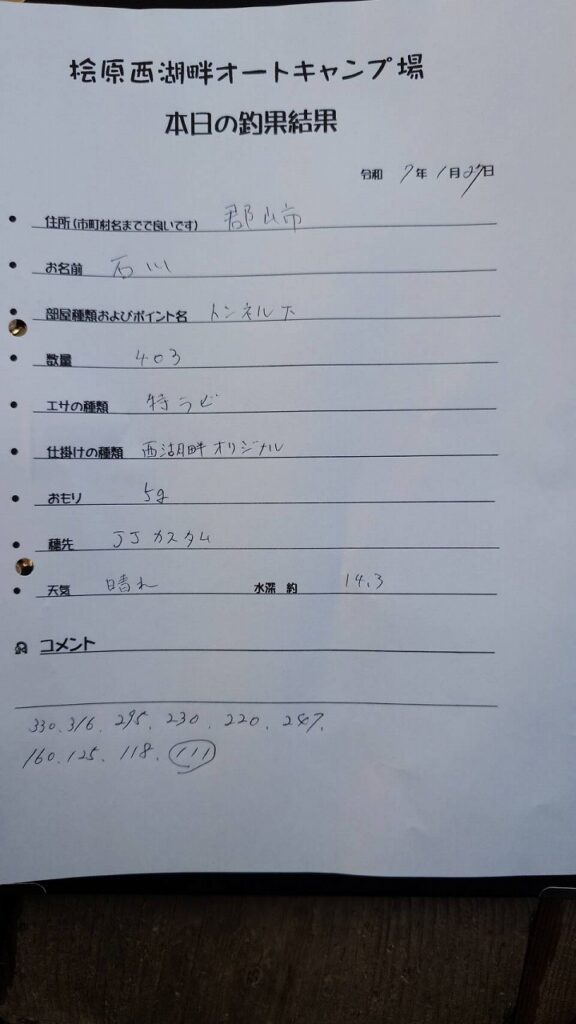 桧原西湖畔オートキャンプ場
本日の釣果結果
令和 7年 1月27日
● 住所(市町村名までで良いです) 郡山市
● お名前 石川
● 部屋種類およびポイント名 トンネル下
● 数量 403
● エサの種類 特ラビ
● 仕掛けの種類 西湖畔オリジナル
● おもり 5g
● 穂先 JJカスタム
● 天気 晴れ 水深 約 14.3
コメント
330. 316. 295. 230. 220. 247.
160. 125. 118. 111